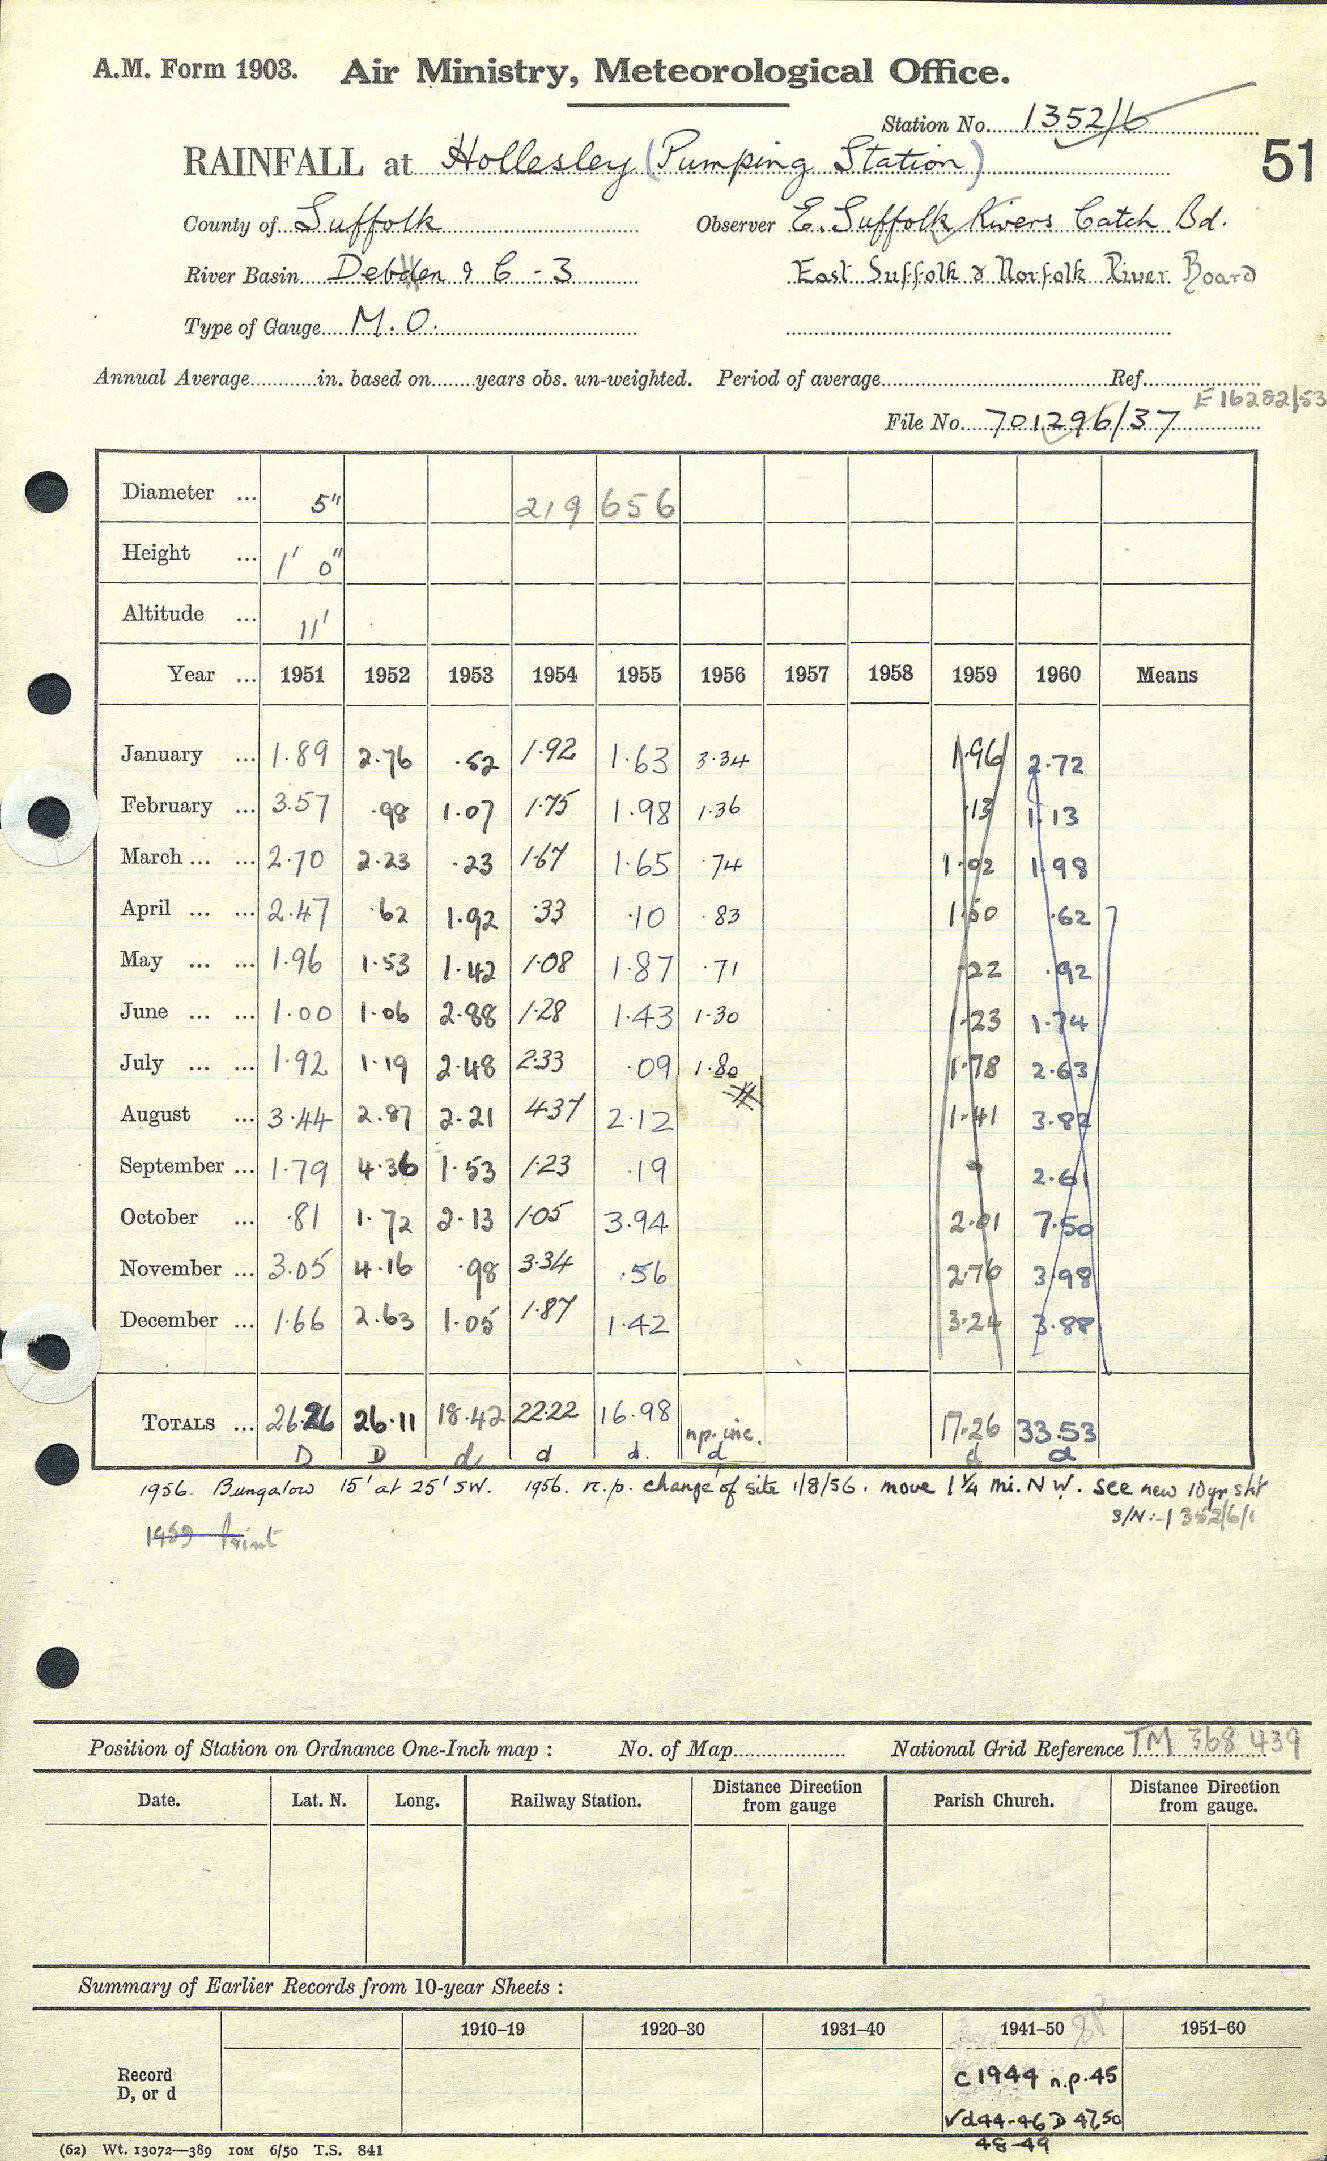 A.M. Form 1903. Air Ministry, Meteorological Office.
Station No. 1352/6
51
RAINFALL at Hollesley (Pumping Station)
County of Suffolk Observer E. Suffolk Rivers Catch Bd.
River Basin Debden & C - 3 East Suffolk & Norfolk River Board
Type of Gauge M.O.
Annual Average in. based on years obs. un-weighted. Period of average Ref.
E16282/53
File No. 701296/37
Diameter ... 5" 219 656
Height ... 1' 0"
Altitude ... 11'
Year ... 1951 1952 1953 1954 1955 1956 1957 1958 1959 1960 Means
January ... 1.89 2.76 .52 1.92 1.63 3.34 1.96 2.72
February ... 3.57 .98 1.07 1.75 1.98 1.36 .13 1.13
March ... ... 2.70 2.23 .23 1.67 1.65 .74 1.02 1.98
April ... ... 2.47 .62 1.92 .33 .10 .83 1.50 .62
May ... ... 1.96 1.53 1.42 1.08 1.87 .71 .22 .92
June ... ... 1.00 1.06 2.88 1.28 1.43 1.30 1.23 1.74
July ... ... 1.92 1.19 2.48 2.33 .09 1.80 1.78 2.63
August ... 3.44 2.87 2.21 4.37 2.12 1.41 3.82
September ... 1.79 4.36 1.53 1.23 .19 2.61
October ... .81 1.72 2.13 1.05 3.94 2.01 7.50
November ... 3.05 4.16 .98 3.34 .56 2.76 3.98
December ... 1.66 2.63 1.05 1.87 1.42 3.24 3.88
TOTALS ... 26.26 26.11 18.42 22.22 16.98 n.p. inc. 17.26 33.53
D D d d d. d d d
1956. Bungalow 15' at 25' SW. 1956. n.p. change of site 1/8/56. move 1¼ mi. NW. see new 10yr sht
S/N:-1352/6/1
1959 Print
Position of Station on Ordnance One-Inch map : No. of Map National Grid Reference TM 368 439
Date. Lat. N. Long. Railway Station. Distance from gauge Direction Parish Church. Distance from gauge. Direction
Summary of Earlier Records from 10-year Sheets :
1910-19 1920-30 1931-40 1941-50 1951-60
Record
D, or d
C1944 n.p.45
Vd44-46 D 47,50
48-49
(62) Wt. 13072—389 10M 6/50 T.S. 841